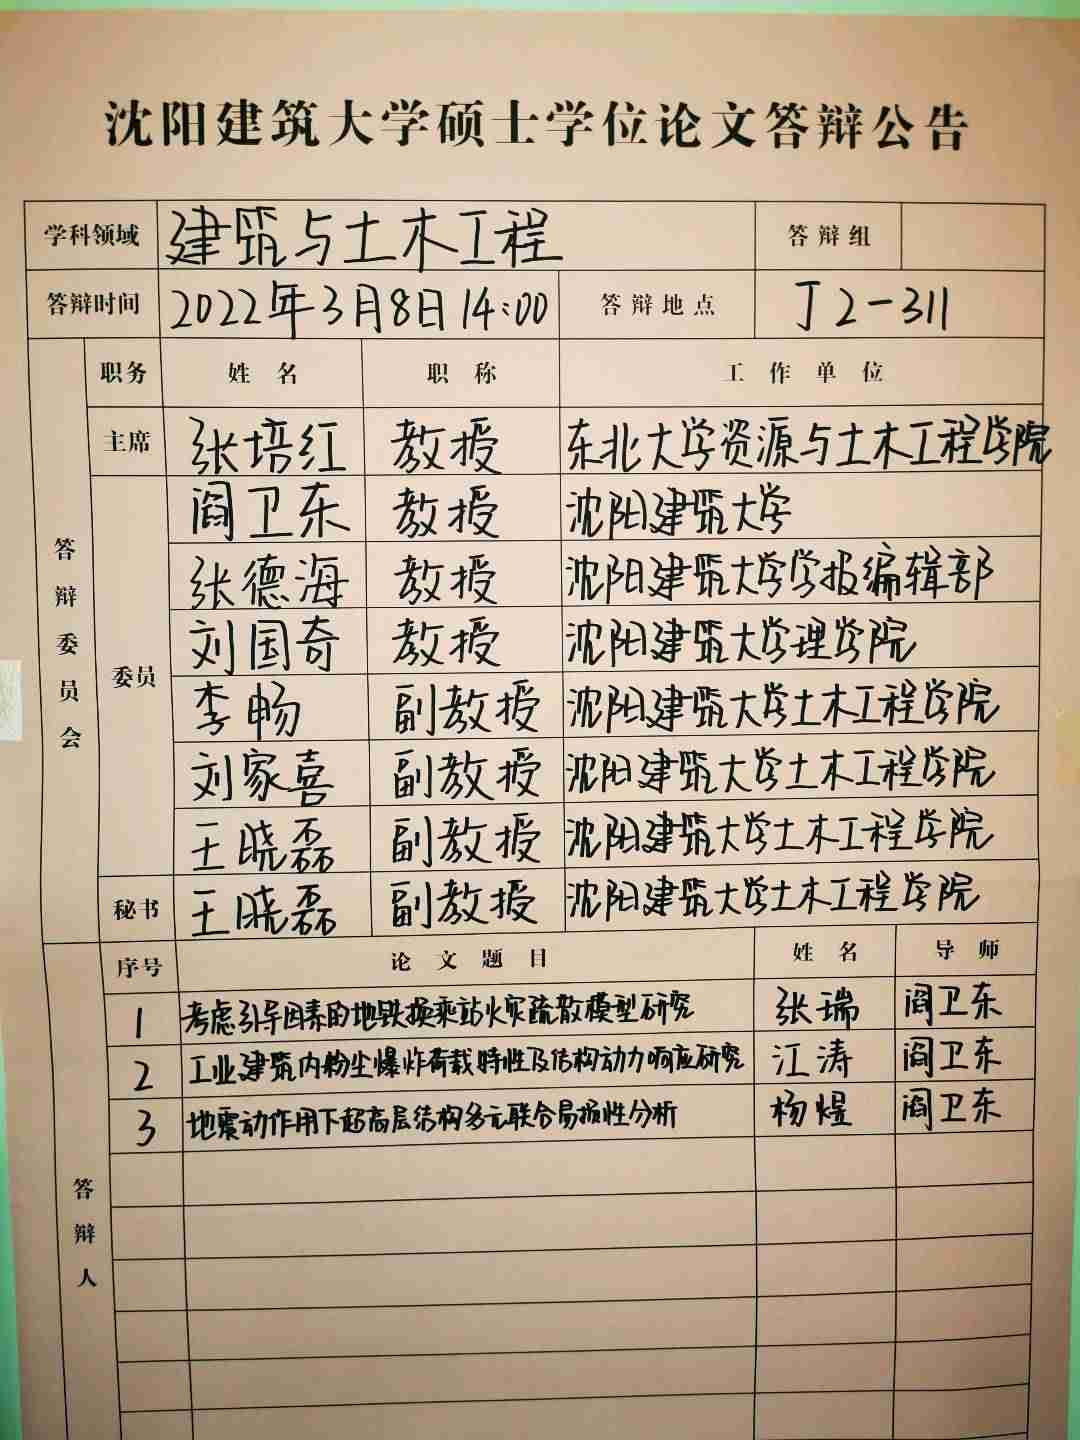 沈阳建筑大学硕士学位论文答辩公告
学科领域 建筑与土木工程 答辩组
答辩时间 2022年3月8日14:00 答辩地点 丁2-311
答辩委员会
职务 姓名 职称 工作单位
主席 张培红 教授 东北大学资源与土木工程学院
委员
阎卫东 教授 沈阳建筑大学
张德海 教授 沈阳建筑大学学报编辑部
刘国奇 教授 沈阳建筑大学理学院
李畅 副教授 沈阳建筑大学土木工程学院
刘家喜 副教授 沈阳建筑大学土木工程学院
王晓磊 副教授 沈阳建筑大学土木工程学院
秘书 王晓磊 副教授 沈阳建筑大学土木工程学院
答辩人
序号 论文题目 姓名 导师
1 考虑引导因素的地铁换乘站火灾疏散模型研究 张瑞 阎卫东
2 工业建筑内粉尘爆炸荷载特性及结构动力响应研究 江涛 阎卫东
3 地震动作用下超高层结构多元联合易损性分析 杨煜 阎卫东